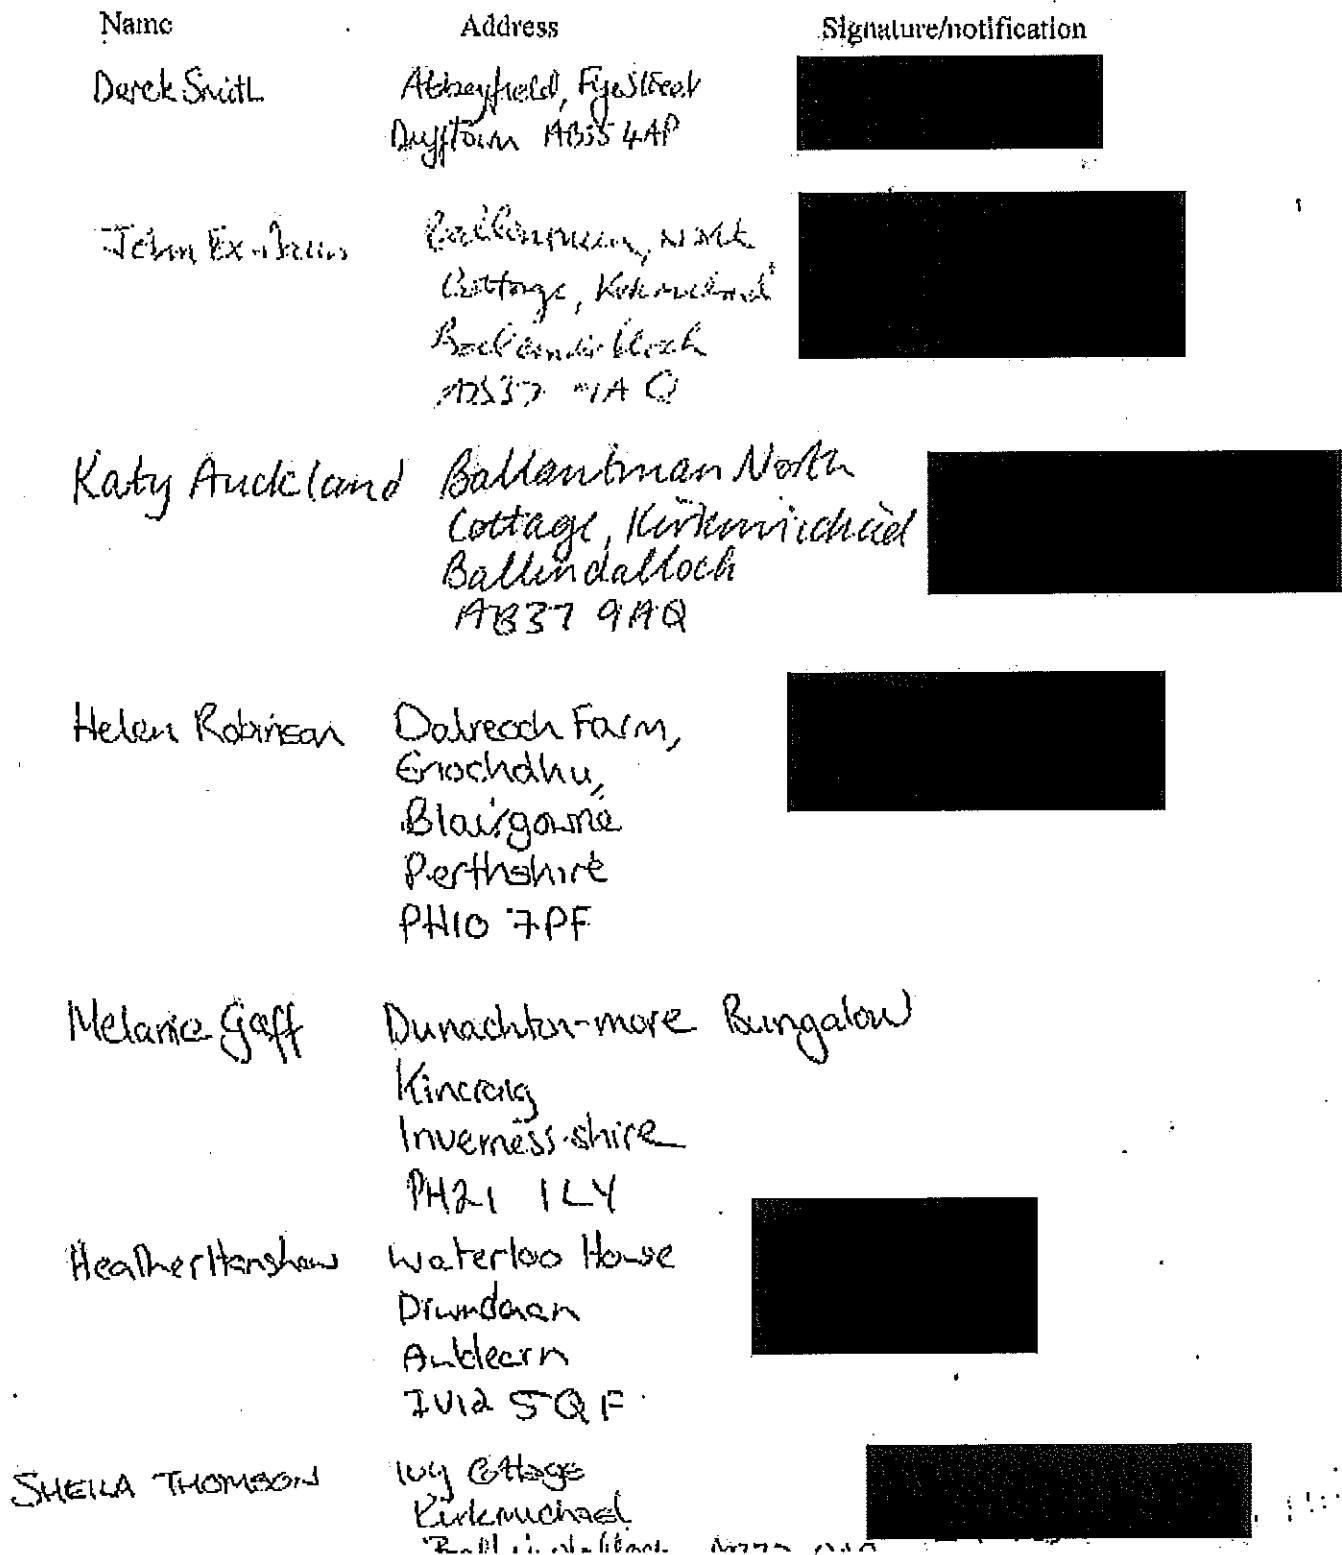 Name Address Signature/notification
Derek Smith Abbeyfield, Fife Street
Dufftown AB55 4AP
John North
Cottage,
Ballindalloch
AB37 9AQ
Katy Auckland Ballantman North
Cottage, Kirkmichael
Ballindalloch
AB37 9AQ
Helen Robinson Dalreoch Farm,
Enochdhu,
Blairgowrie
Perthshire
PH10 7PF
Melanie Goff Dunachton-more Bungalow
Kincraig
Inverness-shire
PH21 1LY
Heather Henshaw Waterloo House
Drumdaan
Auldearn
IV12 5QF
SHEILA THOMSON Ivy Cottage
Kirkmichael
Ballindalloch